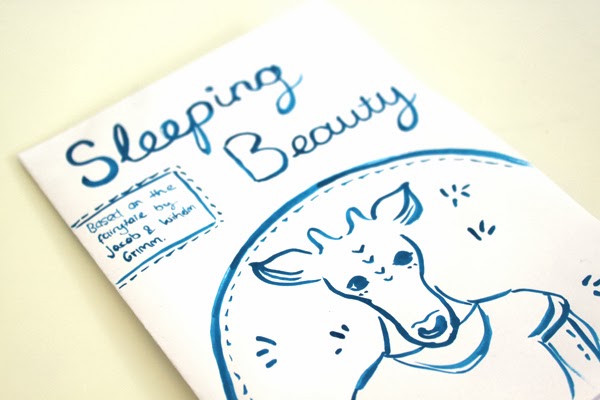 Sleeping
Beauty
Based on the
fairytale by
Jacob & Wilhelm
Grimm.